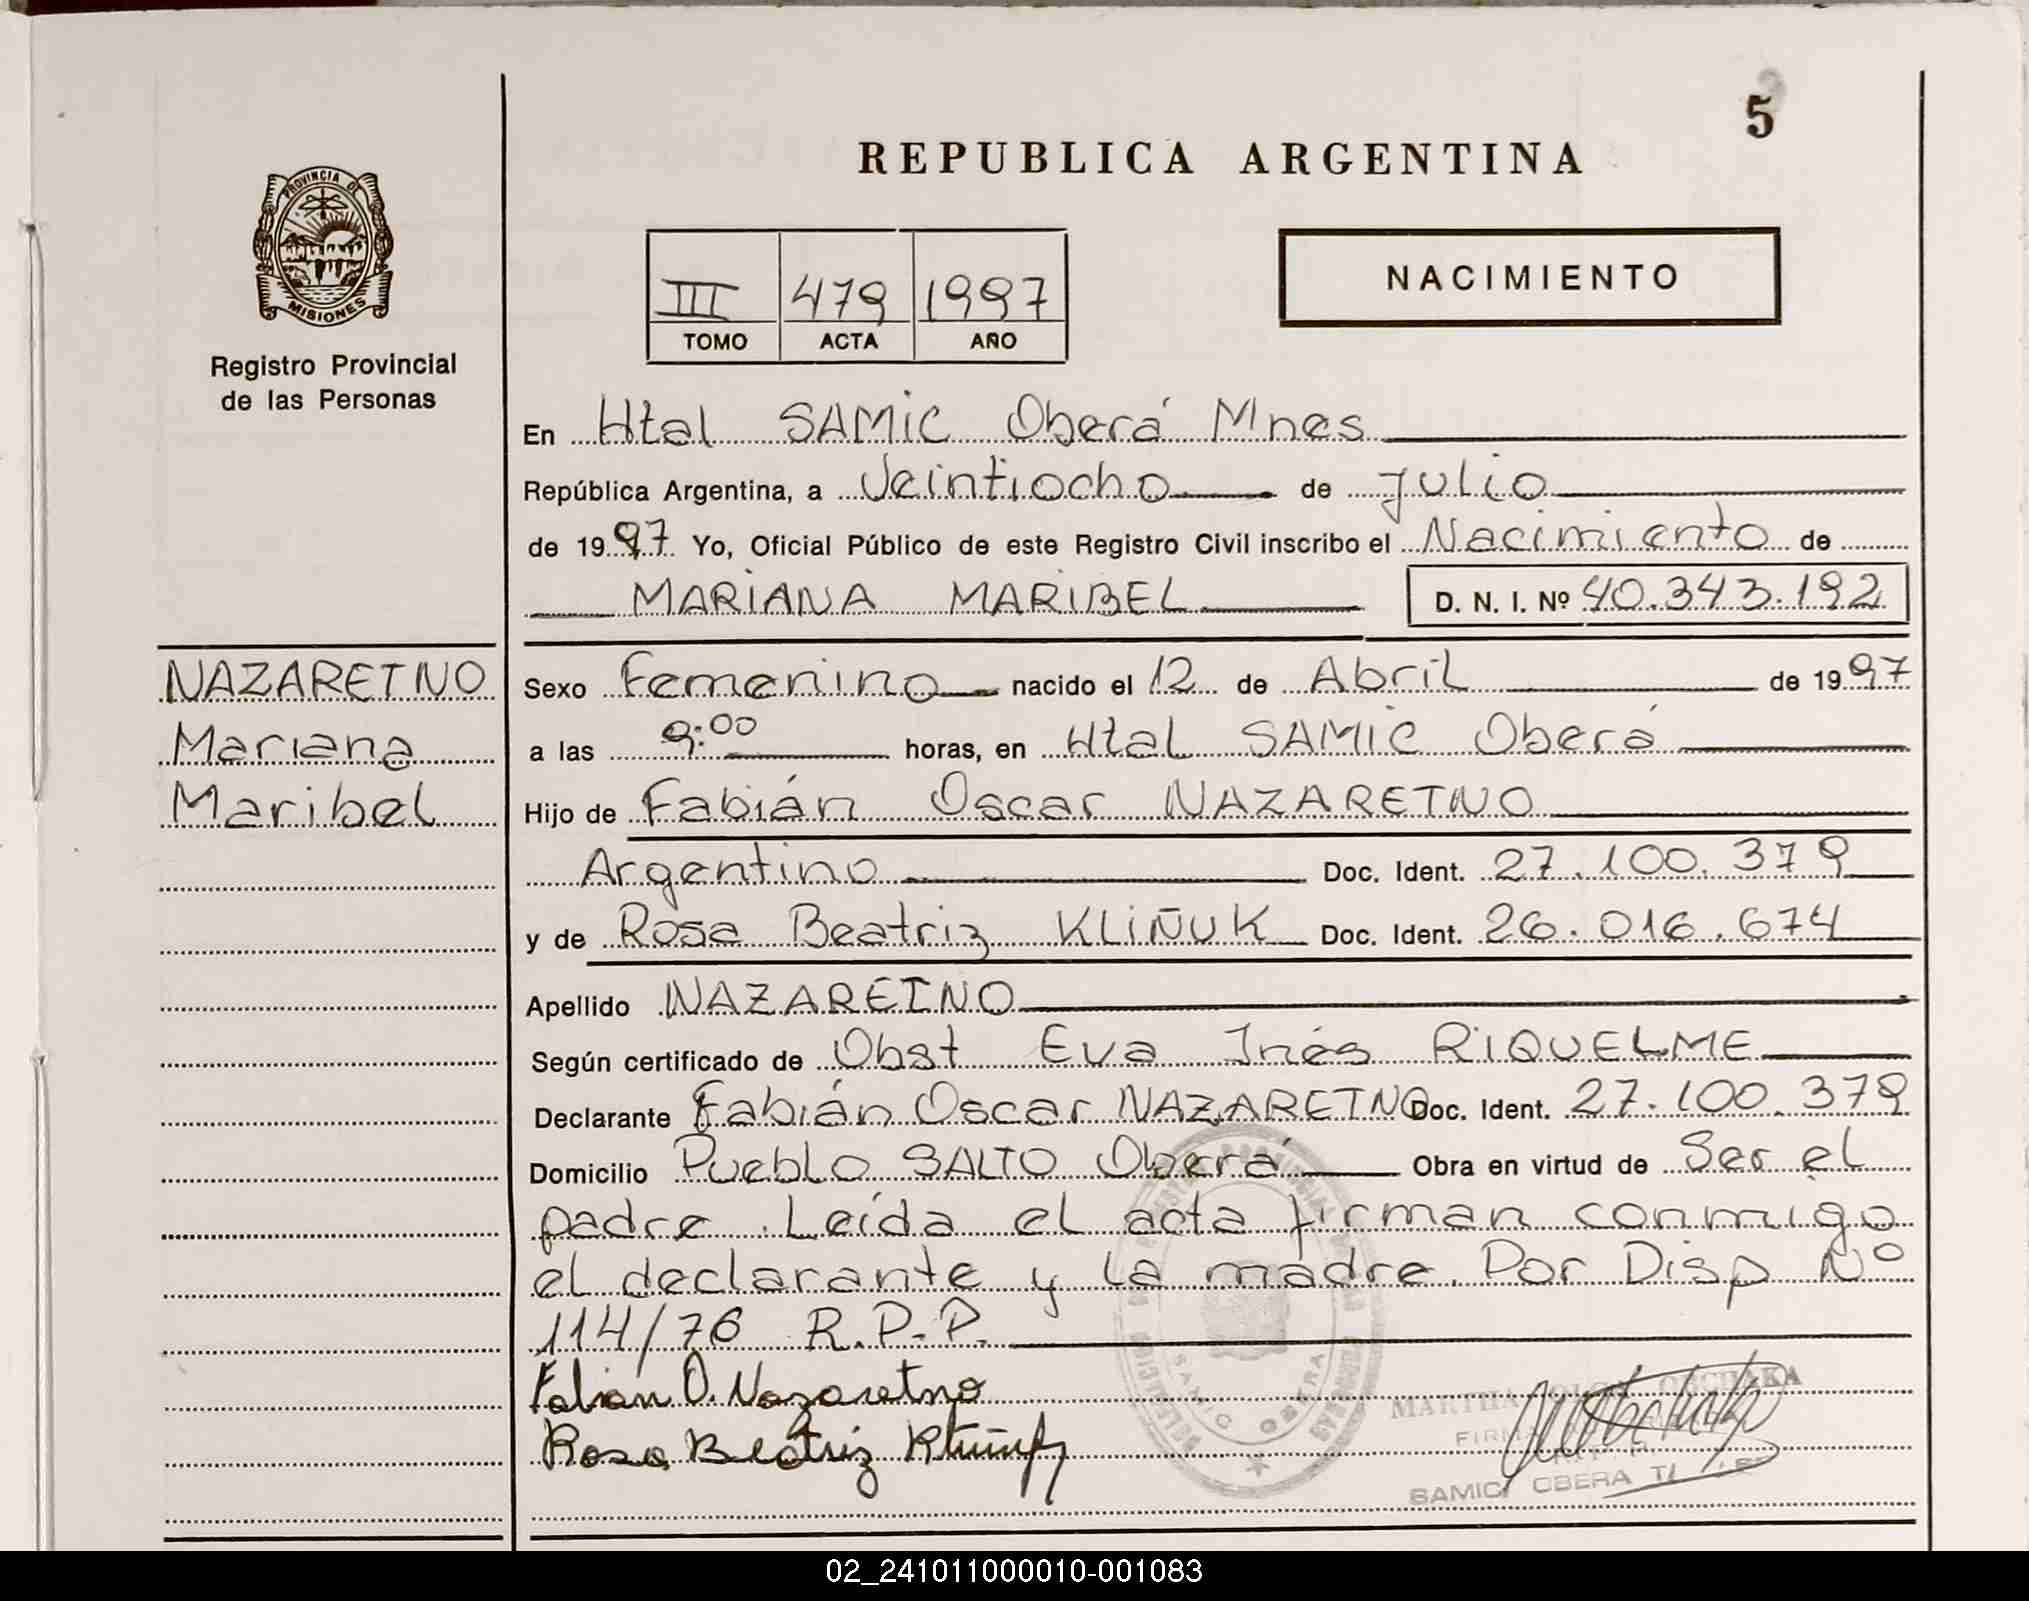 5
REPUBLICA ARGENTINA
PROVINCIA DE
MISIONES
Registro Provincial
de las Personas
III 479 1997
TOMO ACTA AÑO
NACIMIENTO
En Htal SAMIC Oberá Mnes
República Argentina, a Veintiocho de Julio
de 1997 Yo, Oficial Público de este Registro Civil inscribo el Nacimiento de
MARIANA MARIBEL D. N. I. Nº 40.343.192
NAZARETNO
Mariana
Maribel
Sexo Femenino nacido el 12 de Abril de 1997
a las 9:00 horas, en Htal SAMIC Oberá
Hijo de Fabián Oscar NAZARETNO
Argentino Doc. Ident. 27.100.379
y de Rosa Beatriz KLIÑUK Doc. Ident. 26.016.674
Apellido NAZARETNO
Según certificado de Obst Eva Inés RIQUELME
Declarante Fabián Oscar NAZARETNO Doc. Ident. 27.100.379
Domicilio Pueblo SALTO Oberá Obra en virtud de Ser el
padre. Leída el acta firman conmigo
el declarante y la madre. Por Disp Nº
114/76 R.P.P.
Fabian O. Nazaretno
Rosa Beatriz Kliñuk
MARTHA OLGA
SAMIC OBERA
02_241011000010-001083